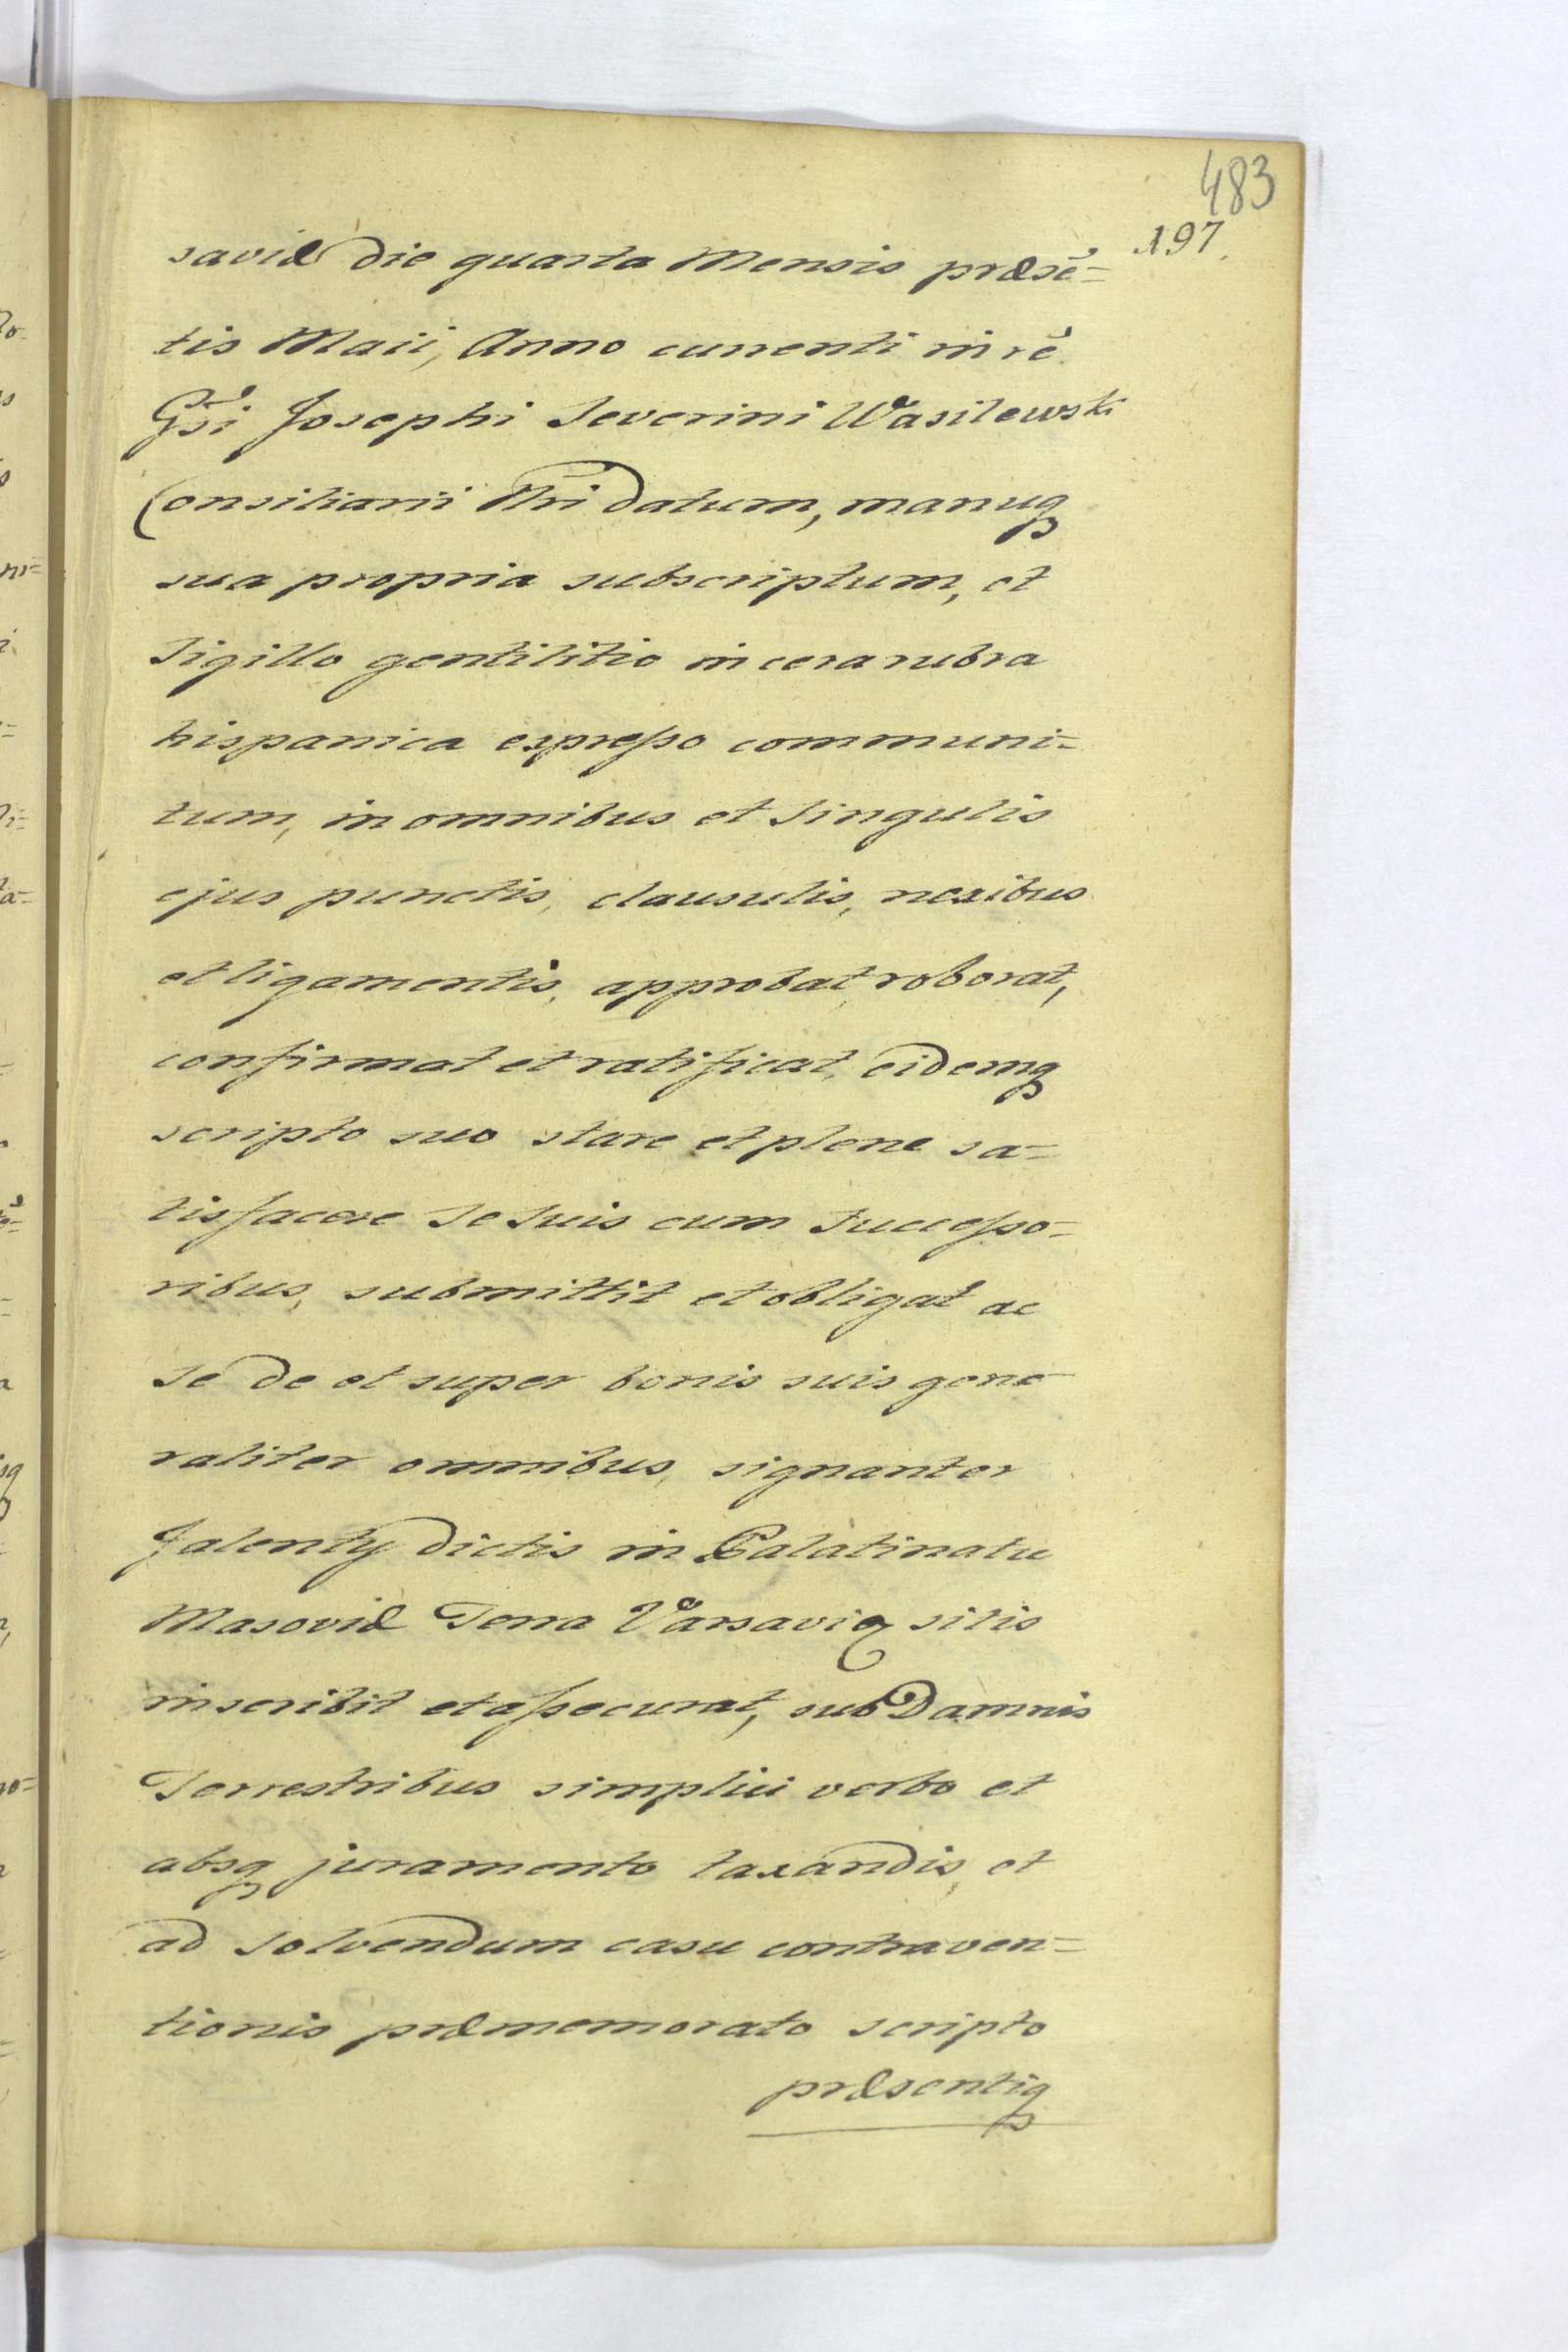 483
197.
saviæ die quarta Mensis præsẽ=
tis Maii, Anno currenti in rẽ
Gsi Josephi Severini Wasilewski
Consiliarii Nri datum, manuq
sua propria subscriptum, et
Sigillo gentilitio in cera rubra
hispanica expresso communi=
tum, in omnibus et Singulis
ejus punctis, clausulis, nexibus
et ligamentis, approbat, roborat,
confirmat et ratificat, eidemq
scripto suo stare et plene sa=
tisfacere Se Suis cum Successo=
ribus, submittit et obligat ac
Se de et super bonis suis gene
raliter omnibus, signanter
Jalenty dictis in Palatinatu
Masoviæ Terra Varsavię sitis
inscribit et assecurat, sub Damnis
Terrestribus simplici verbo et
absq juramento taxandis, et
ad Solvendum casu contraven=
tionis præmemorato scripto
præsentiq